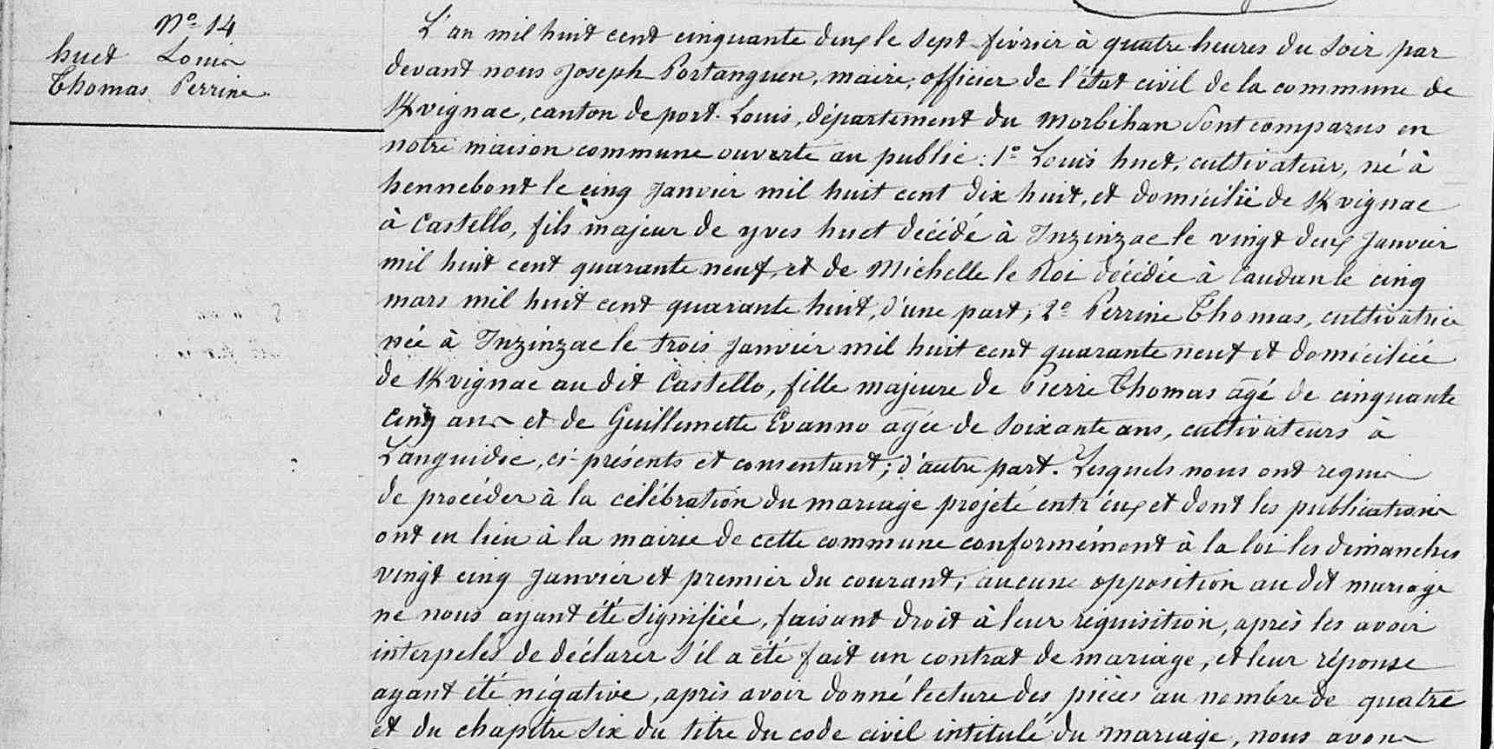 N° 14
huet Louis
Thomas Perrine
L'an mil huit cent cinquante deux le sept février à quatre heures du soir par
devant nous Joseph Portanguen, maire, officier de l'état civil de la commune de
Kvignac, canton de port-Louis, département du Morbihan sont comparus en
notre maison commune ouverte au public : 1° Louis huet, cultivateur, né à
hennebont le cinq Janvier mil huit cent dix huit, et domicilié de Kvignac
à Castello, fils majeur de yves huet décédé à Inzinzac le vingt deux Janvier
mil huit cent quarante neuf, et de Michelle le Roi décédée à Caudan le cinq
mars mil huit cent quarante huit, d'une part ; 2° Perrine Thomas, cultivatrice
née à Inzinzac le trois Janvier mil huit cent quarante neuf et domiciliée
de Kvignac au dit Castello, fille majeure de Pierre Thomas agé de cinquante
cinq ans et de Guillemette Evanno agée de soixante ans, cultivateurs à
Languidic, ci-présents et consentant ; d'autre part. Lesquels nous ont requis
de procéder à la célébration du mariage projeté entr'eux et dont les publications
ont eu lieu à la mairie de cette commune conformément à la loi les dimanches
vingt cinq Janvier et premier du courant ; aucune opposition au dit mariage
ne nous ayant été signifiée, faisant droit à leur réquisition, après les avoir
interpelés de déclarer s'il a été fait un contrat de mariage, et leur réponse
ayant été négative, après avoir donné lecture des pièces au nombre de quatre
et du chapitre six du titre du code civil intitulé du mariage, nous avons